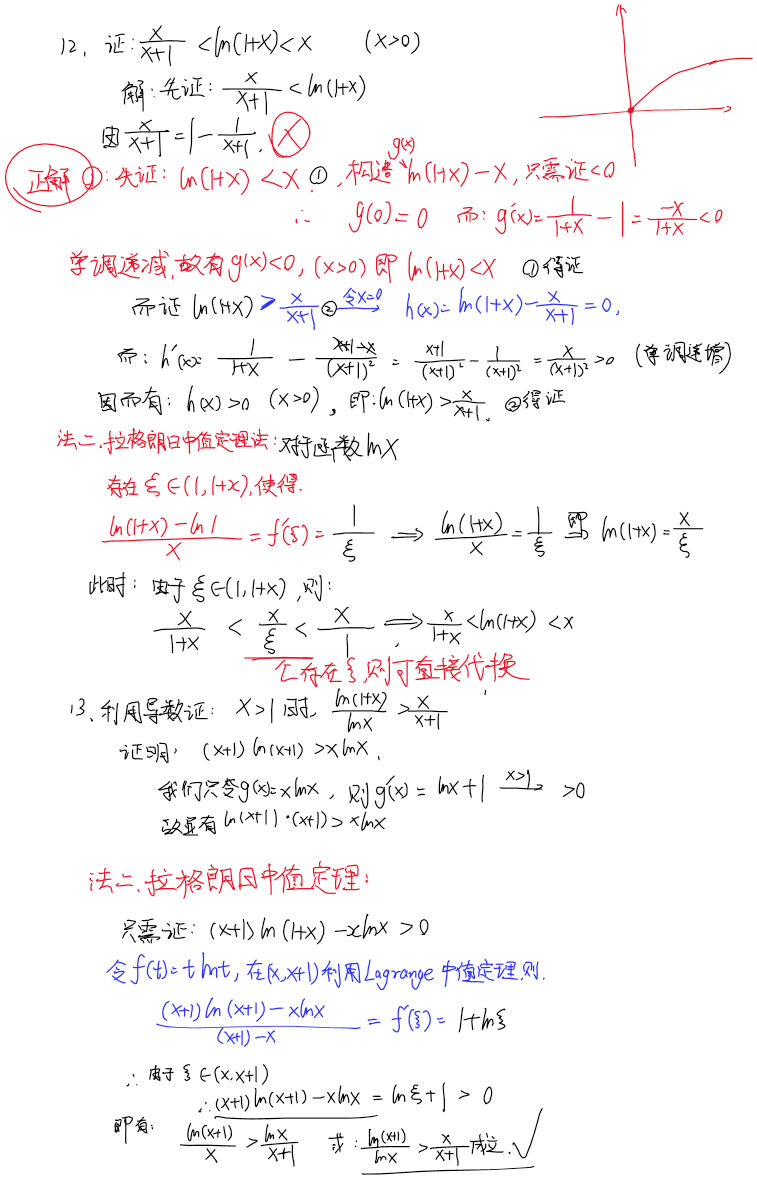 12、证: x/(x+1) < ln(1+x) < x (x>0)
解:先证: x/(x+1) < ln(1+x)
因 x/(x+1) = 1 - 1/(x+1). X
正解 ①:先证: ln(1+x) < x ①, 构造 g(x) ln(1+x) - x, 只需证<0
∴ g(0)=0 而: g'(x) = 1/(1+x) - 1 = -x/(1+x) < 0
单调递减,故有g(x)<0, (x>0) 即 ln(1+x)<x ①得证
而证 ln(1+x) > x/(x+1) ② 令x=0 → h(x)= ln(1+x) - x/(x+1) = 0,
而: h'(x)= 1/(1+x) - (x+1-x)/(x+1)² = (x+1)/(x+1)² - 1/(x+1)² = x/(x+1)² >0 (单调递增)
因而有: h(x)>0 (x>0), 即: ln(1+x) > x/(x+1). ②得证
法二、拉格朗日中值定理法: 对于函数lnx
存在 ξ∈(1,1+x), 使得.
(ln(1+x) - ln1)/x = f'(ξ) = 1/ξ ⟹ ln(1+x)/x = 1/ξ 即 ln(1+x) = x/ξ
此时: 由于 ξ∈(1,1+x), 则:
x/(1+x) < x/ξ < x/1, ⟹ x/(1+x) < ln(1+x) < x
存在ξ,则可直接代换
13、利用导数证: x>1时, ln(1+x)/lnx > x/(x+1)
证明: (x+1)ln(x+1) > xlnx.
我们只令g(x)=xlnx, 则g'(x) = lnx+1 x>1 → >0
故显有 ln(x+1)·(x+1) > xlnx
法二、拉格朗日中值定理:
只需证: (x+1)ln(1+x) - xlnx > 0
令f(t)=tlnt, 在(x,x+1)利用Lagrange中值定理,则.
((x+1)ln(x+1) - xlnx)/((x+1)-x) = f'(ξ) = 1+lnξ
∴ 由于 ξ∈(x,x+1)
∴(x+1)ln(x+1) - xlnx = lnξ+1 > 0
即有: ln(x+1)/x > lnx/(x+1) 求: ln(x+1)/lnx > x/(x+1) 成立. √